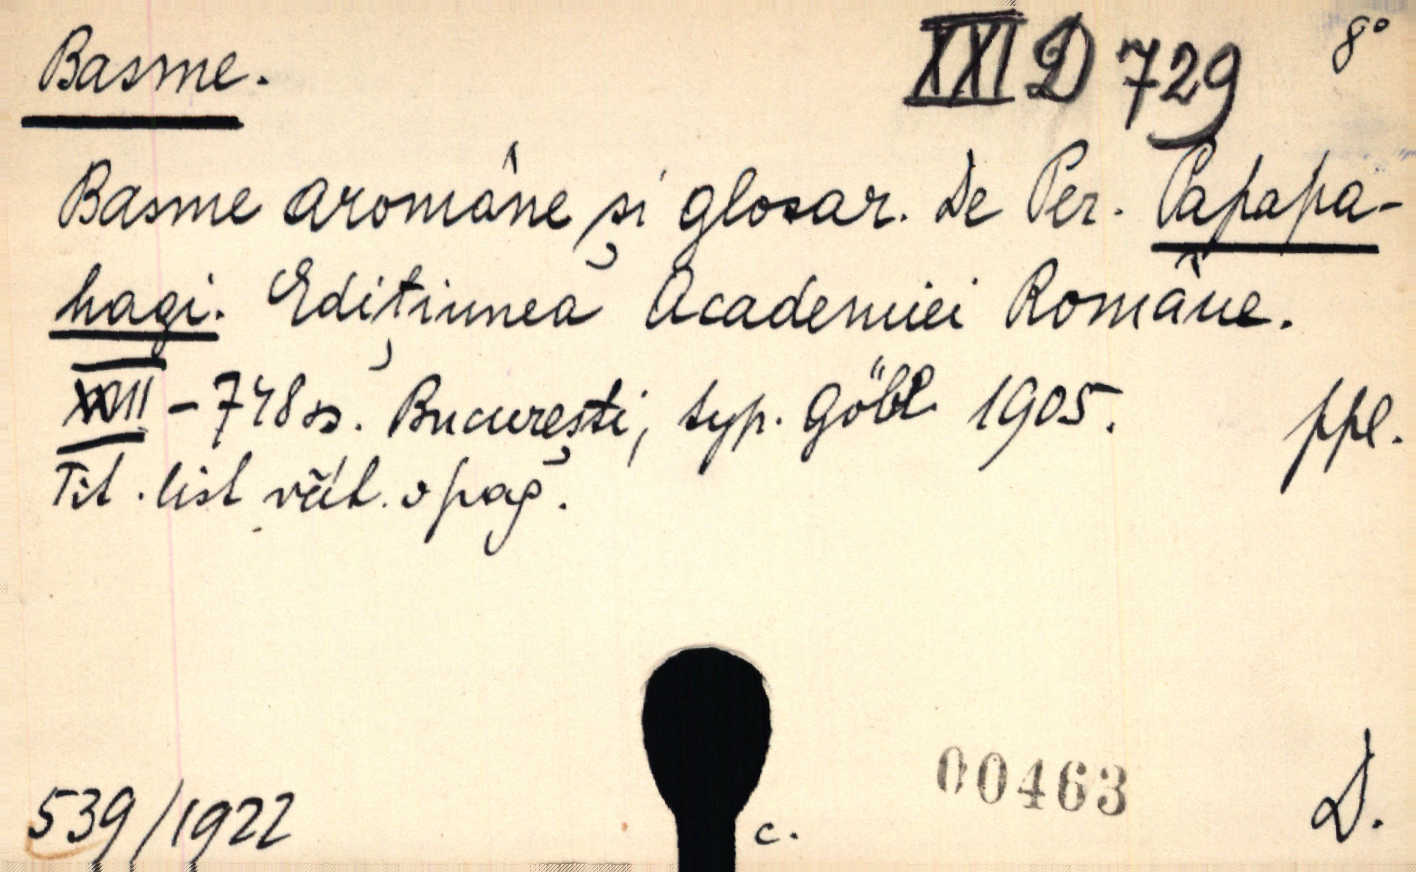 Basme. XXI D 729 8°
Basme aromâne și glosar. De Per. Papapa-
hagi. Edițiunea Academiei Române.
XVIII - 748 s. București, typ. Göbl 1905. ppl.
Tit. list vět. o pag.
00463
539/1922 c. D.